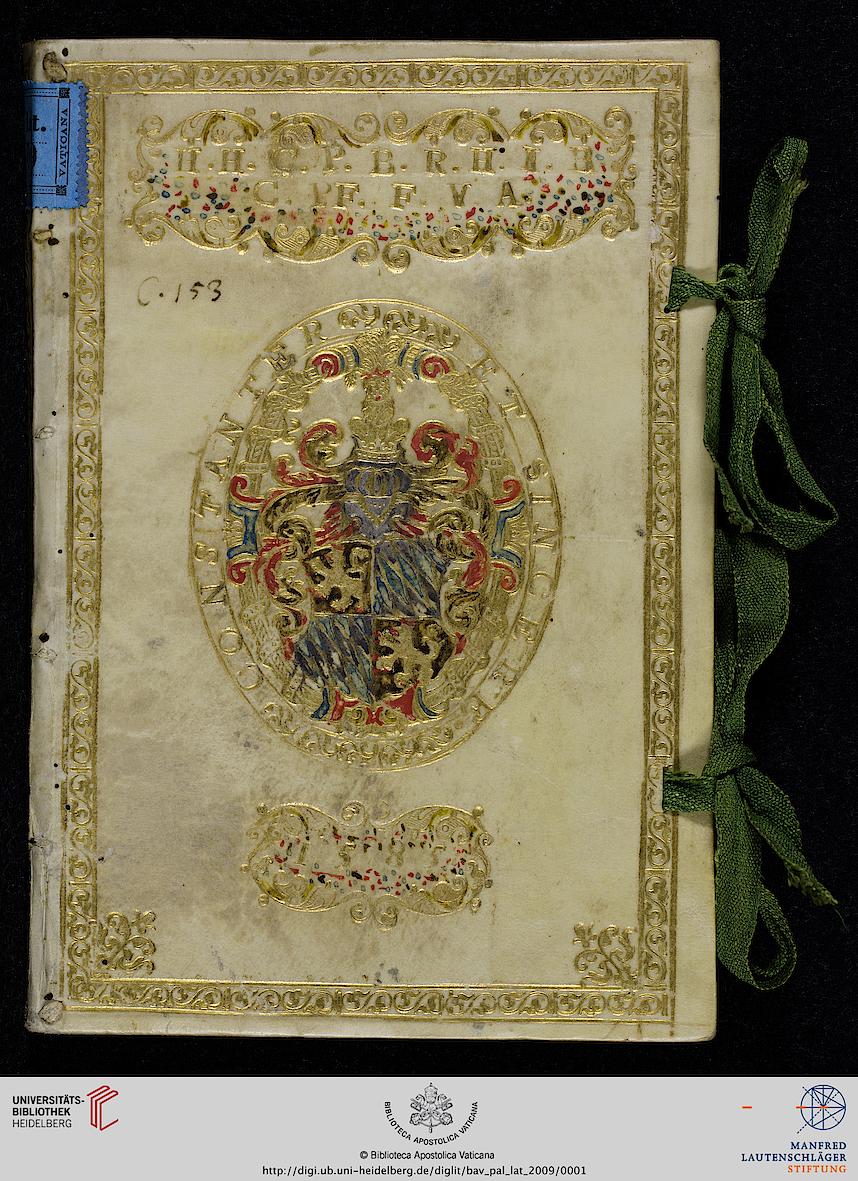 t.
VATICANA
H. H. C. P. B. R. H. I. B
C. PF. F. V A
C. 153
CONSTANTER ET SINCERE
UNIVERSITÄTS-
BIBLIOTHEK
HEIDELBERG
BIBLIOTECA APOSTOLICA VATICANA
© Biblioteca Apostolica Vaticana
http://digi.ub.uni-heidelberg.de/diglit/bav_pal_lat_2009/0001
MANFRED
LAUTENSCHLÄGER
STIFTUNG